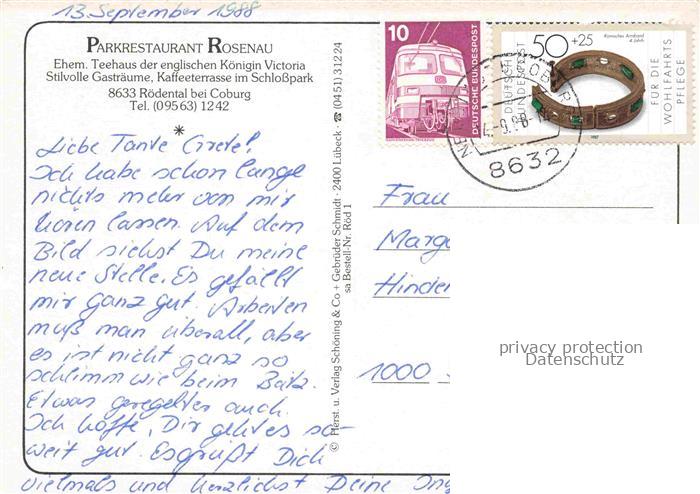 13. September 1988
PARKRESTAURANT ROSENAU
Ehem. Teehaus der englischen Königin Victoria
Stilvolle Gasträume, Kaffeeterrasse im Schloßpark
8633 Rödental bei Coburg
Tel. (09563) 1242
*
Liebe Tante Grete!
Ich habe schon lange
nichts mehr von mir
hören lassen. Auf dem
Bild siehst Du meine
neue Stelle. Es gefällt
mir ganz gut. Arbeiten
muß man überall, aber
es ist nicht ganz so
schlimm wie beim Bätz.
Etwas geregelter auch.
Ich hoffe, Dir geht es so-
weit gut. Es grüßt Dich
vielmals und herzlichst Deine
© Herst. u. Verlag Schöning & Co + Gebrüder Schmidt · 2400 Lübeck · ☎ (0451) 31224
sa Bestell-Nr. Röd 1
10
DEUTSCHE BUNDESPOST
50+25
Römisches Armband
4. Jahrh.
DEUTSCHE BUNDESPOST
FÜR DIE WOHLFAHRTSPFLEGE
1987
8632
Frau
Marg
Hinder
1000
privacy protection
Datenschutz